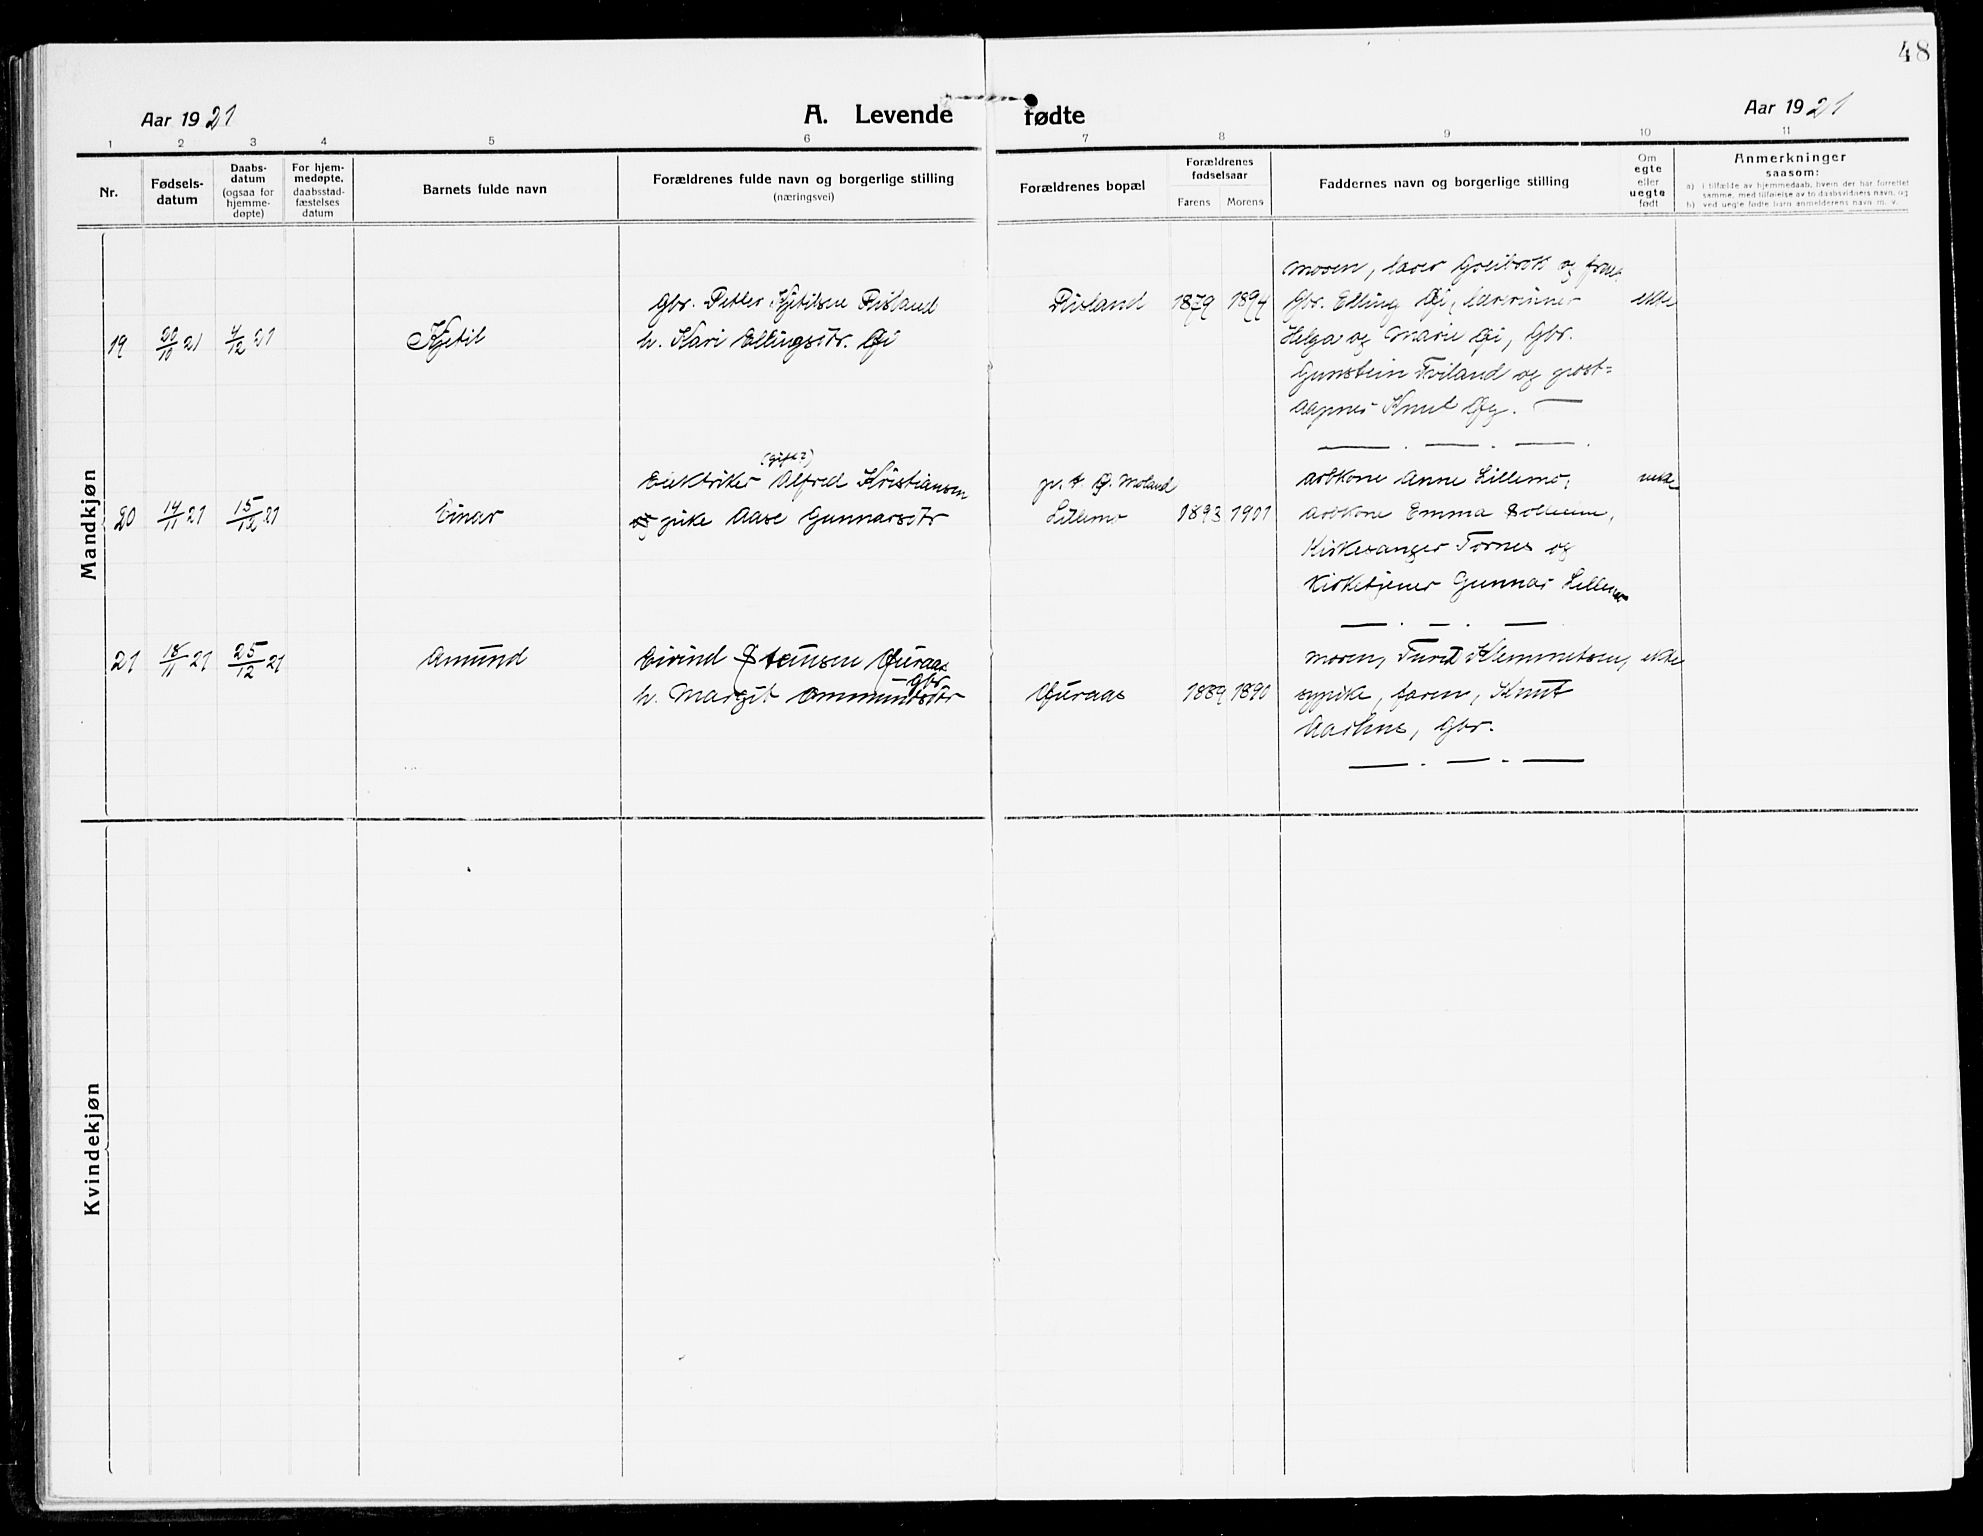 48
Aar 1921
A. Levende fødte
Aar 1921
1 2 3 4 5 6 7 8 9 10 11
Nr.
Fødsels-
datum
Daabs-
datum
(ogsaa for
hjemme-
døpte)
For hjem-
medøpte,
daabsstad-
fæstelses
datum
Barnets fulde navn
Forældrenes fulde navn og borgerlige stilling
(næringsvei)
Forældrenes bopæl
Forældrenes
fødselsaar
Farens Morens
Faddernes navn og borgerlige stilling
Om
egte
eller
uegte
født
Anmerkninger
saasom:
a) i tilfælde av hjemmedaab, hvem der har forrettet
samme, med tilføielse av to daabsvidners navn, og
b) ved uegte fødte barn anmelderens navn m. v.
Mandkjøn
19 29/10 21 4/12 21
Kjetil
Gbr. Petter Kjetilsen Risland
h. Kari Ellingsdtr. Øi
Risland
1879 1894
moren, lærer Greibrok og frue,
Gbr. Elling Øi, lærerinner
Helga og Marie Øi, Gbr.
Gunstein Tviland og post=
aapner Knut Øy.
ekte
20 14/11 21 15/12 21
Einar
(gift?)
Elektriker Alfred Kristiansen
og pike Aase Gunnarsdtr
p. t. Ø. Moland
Lillemo
1893 1901
arbkone Anne Lillemo,
arbkone Emma Solheim,
Kirkesanger Tornes og
Kirketjener Gunnar Lillemo
uekte
21 18/11 21 25/12 21
Amund
Eivind Stensen Øuraas
Gbr.
h. Margit Ommundsdtr
Øuraas
1889 1890
moren, Turid Klemmetsen,
sypike, faren, Knut
Aarhus, Gbr.
ekte
Kvindekjøn